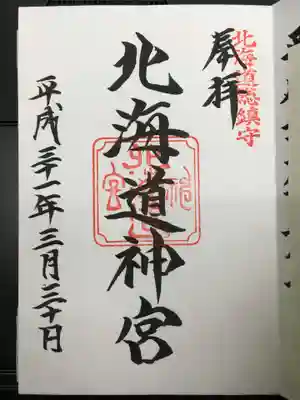 北海道総鎮守
奉拝
北海道神宮
平成三十一年三月三十日